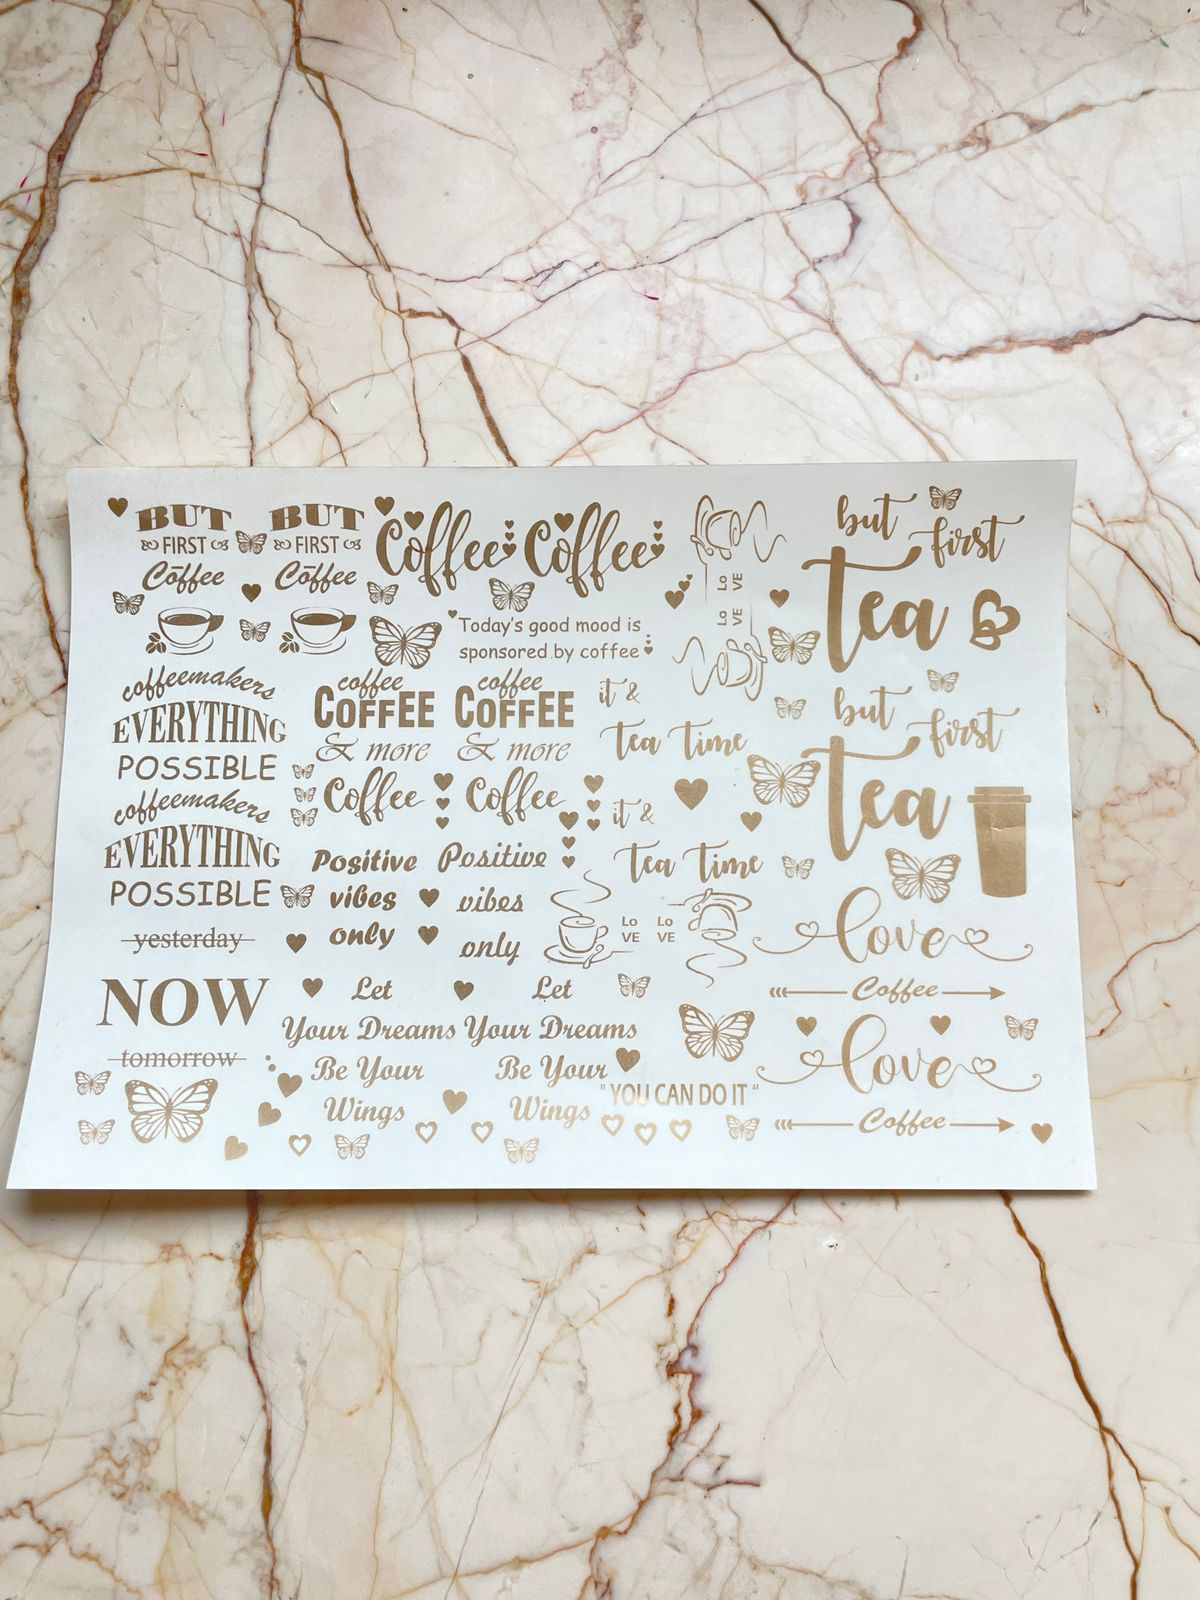 BUT
FIRST
Coffee
BUT
FIRST
Coffee
Coffee
Coffee
LO
VE
LO
VE
but
first
tea
Today's good mood is
sponsored by coffee
coffeemakers
EVERYTHING
POSSIBLE
coffee
COFFEE
& more
Coffee
coffee
COFFEE
& more
Coffee
it &
Tea Time
but
first
tea
coffeemakers
EVERYTHING
POSSIBLE
Positive
vibes
only
Positive
vibes
only
it &
Tea Time
LO
VE
LO
VE
love
Coffee
yesterday
NOW
tomorrow
Let
Your Dreams
Be Your
Wings
Let
Your Dreams
Be Your
Wings
"YOU CAN DO IT"
love
Coffee